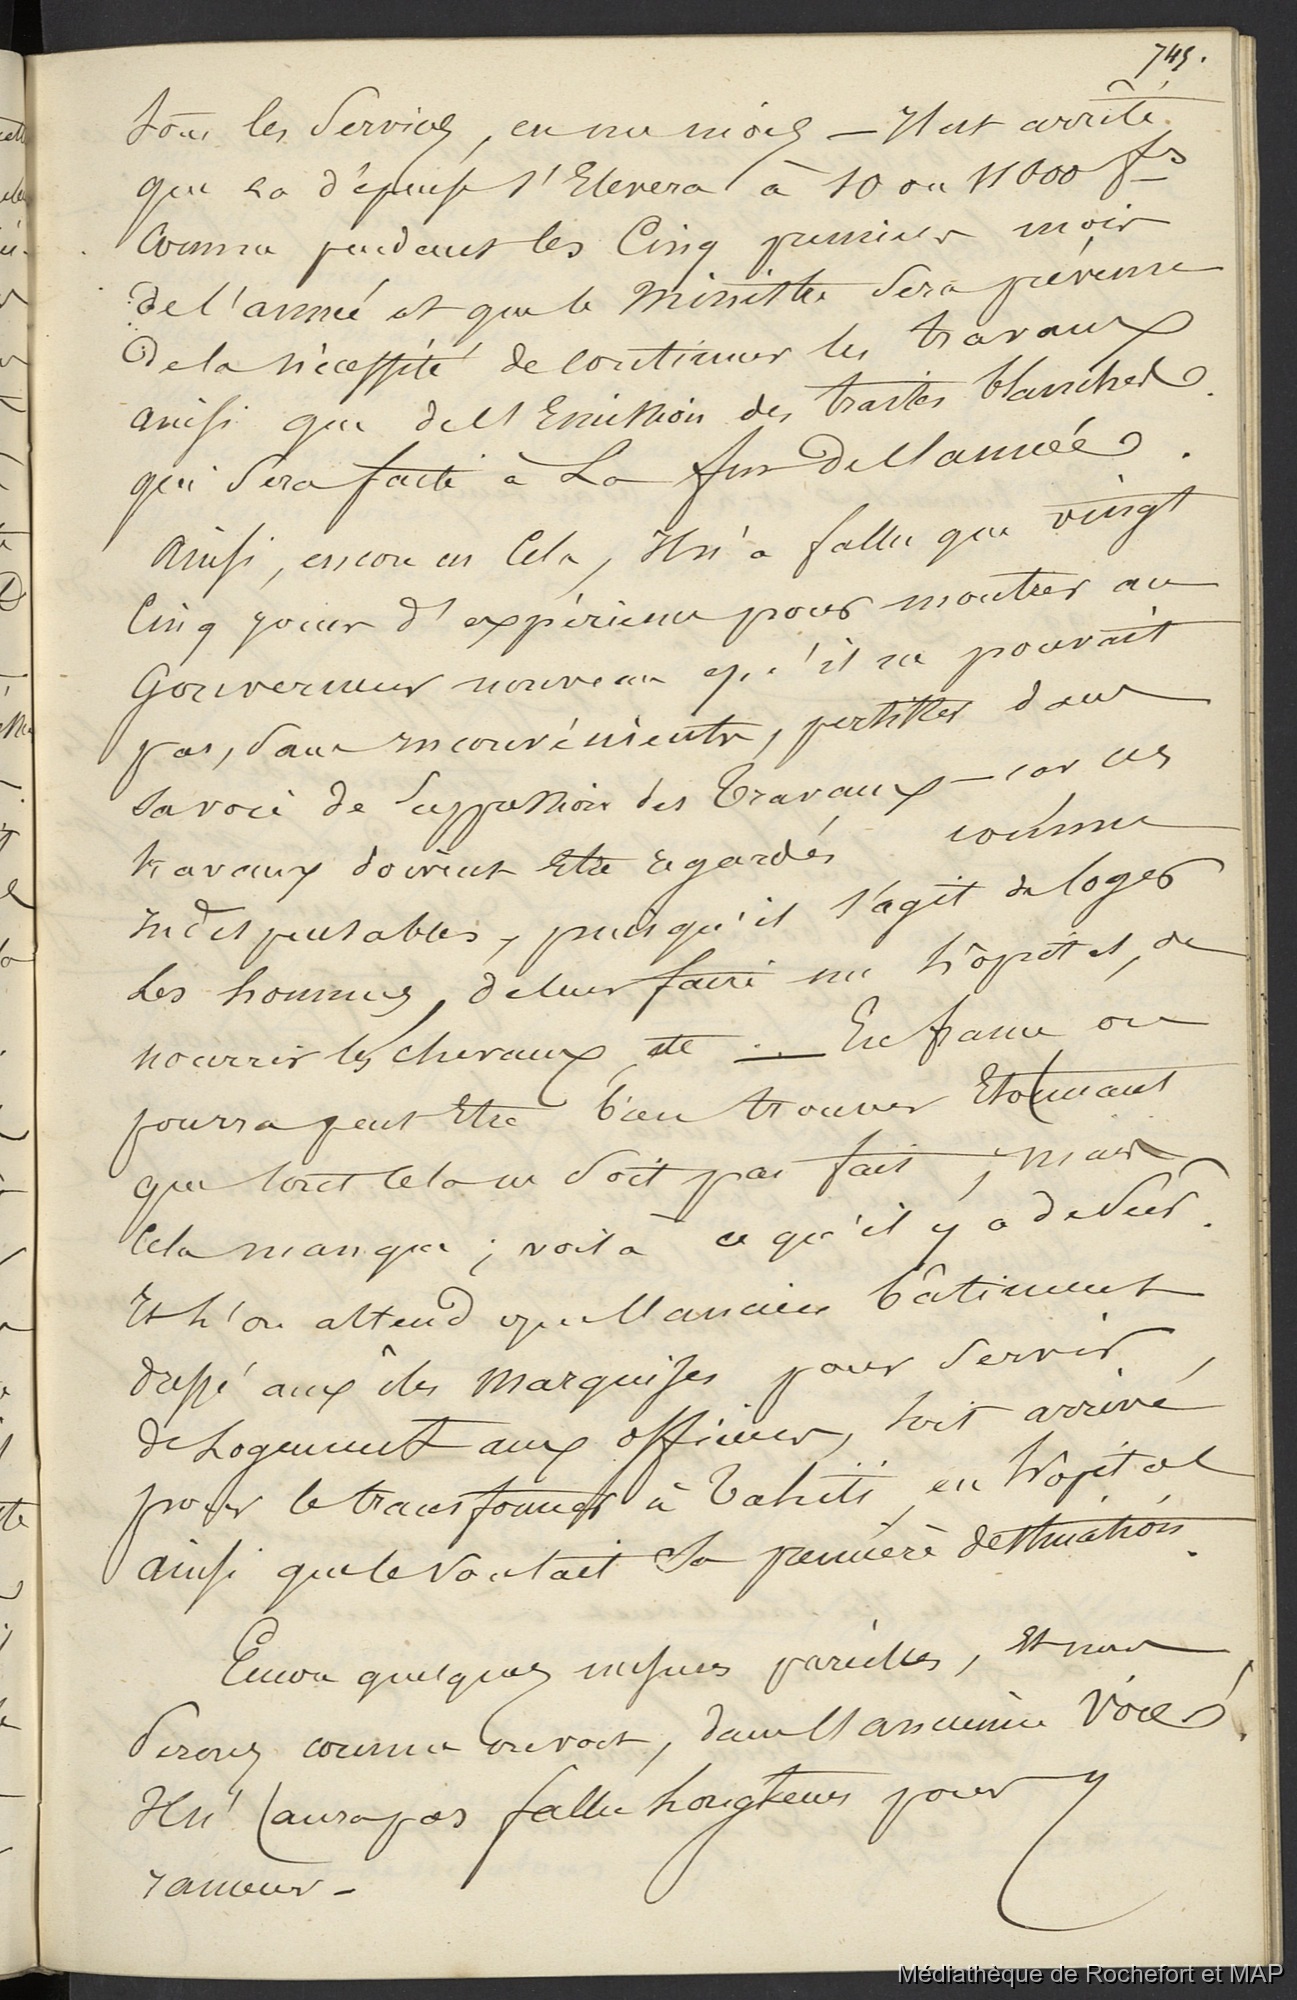 745.
tous les services, en un mois — Il est arrêté
que la dépense s'Elevera à 10 ou 11000 frs
Comme pendant les Cinq premiers mois
de l'année et que le Ministre sera prévenu
de la nécessité de continuer les travaux
ainsi que de l'Emission des traites blanches
qui sera faite à La fin de l'année.
Ainsi, encore en Cela, Il n'a fallu que vingt
Cinq jours d'expérience pour montrer au
Gouverneur nouveau qu'il ne pouvait
pas, sans inconvénients, persister dans
sa voie de suppression des Travaux — car ces
travaux doivent Etre regardés comme
Indispensables, puisqu'il s'agit de loger
les hommes, de leur faire un hôpital, de
nourrir les chevaux, etc ... En france on
pourra peut Etre bien trouver Etonnant
que tout cela ne soit pas fait, mais
Cela manque ; voilà ce qu'il y a de sûr.
Et l'on attend que l'ancien bâtiment
dressé aux îles Marquises pour servir
de Logement aux officiers, soit arrivé
pour le transformer à Tahiti, en hôpital
ainsi que le voulait Sa première destination.
Encore quelques mesures pareilles, Et nous
serons comme on voit, dans l'ancienne Voie,
Il n'aura pas fallu Longtems pour y
ramener —
Médiathèque de Rochefort et MAP